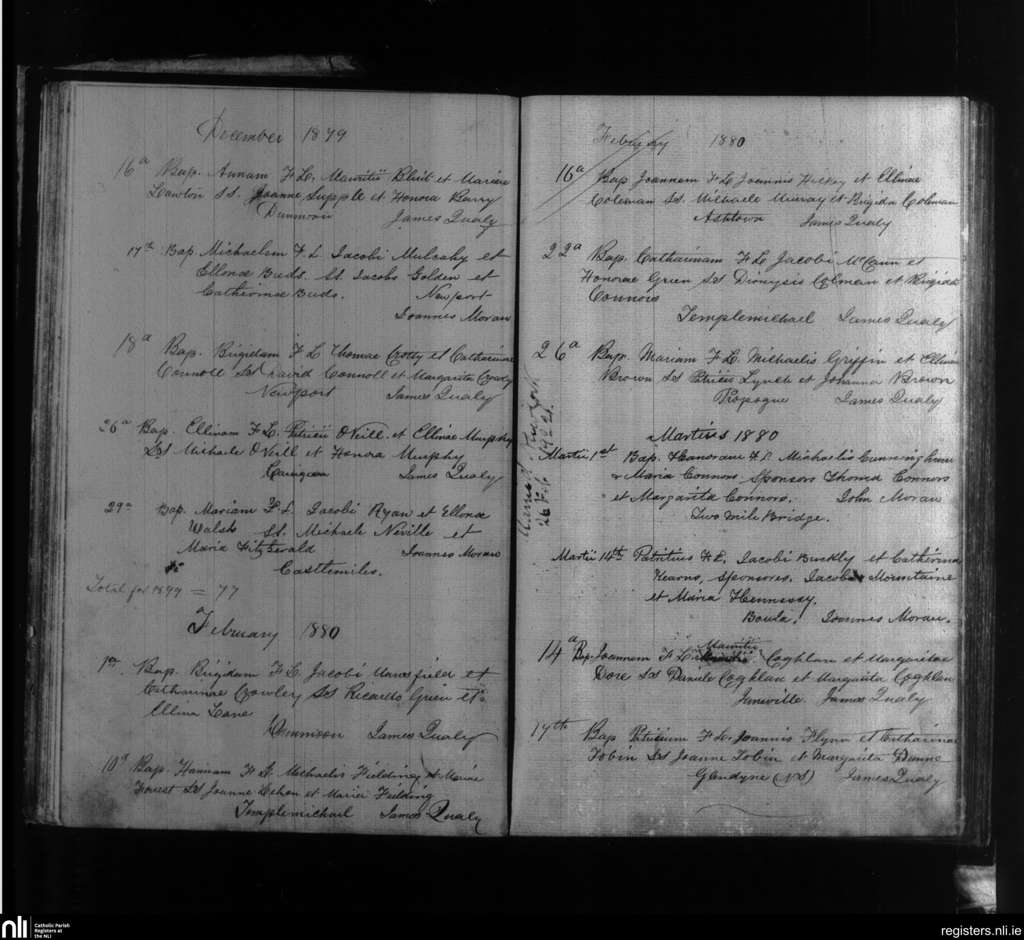 December 1879
16a Bap. Annam F. L. Mauritii et Mariae
Lawton SS. Joanne Supple et Honora Barry
Dunmoon James Qualy
17th Bap. Michaelem F. L. Jacobi Mulcahy et
Ellenae Buds. SS. Jacobo et
Catherina Buds. Newport
Joannes Moran
18a Bap. Brigidam F L Thomae Crotty et Catharinae
Connoll SS David Connoll et Margarita Crotty
Newport James Qualy
26a Bap. Ellinam F. L. Patricii O'Neill et Ellinae Murphy
SS Michaele O'Neill et Honora Murphy
James Qualy
29a Bap. Mariam F. L. Jacobi Ryan et Ellenae
Walsh SS. Michaele Neville et
Maria Fitzgerald Joannes Moran
Castlemiles.
Total for 1879 = 77
February 1880
1a Bap. Brigidam F. L. Jacobi Mansfield et
Catharinae Crowley SS Ricardo Green et
Ellina Lane
Dunmoon James Qualy
10a Bap. Hannam F. L. Michaelis Fielding et Mariae
Forrest SS Joanne et Maria Fielding
Templemichael James Qualy
February 1880
16a Bap Joannem F L Joannis Hickey et Ellinae
Coleman SS. Michaele Murray et Brigida Coleman
Ashtown James Qualy
22a Bap. Catharinam F. L. Jacobi McCann et
Honorae Green SS Dionysio Colman et Brigida
Connors
Templemichael James Qualy
26a Bap. Mariam F. L. Michaelis Griffin et Ellinae
Brown SS Patricio Lynch et Johanna Brown
Propogue James Qualy
Married New York
26 Feb
Martius 1880
Martii 1st Bap. Hanoram F. L. Michaelis Cunningham
& Maria Connors Sponsors Thoma Connors
et Margarita Connors. John Moran
Two mile Bridge.
Martii 14th Patritius F. L. Jacobi Buckly et Catherina
Kearns, sponsores. Jacobo Mountaine
et Maria Hennessy.
Joannes Moran.
14a Bap. Joannem F L Mauritii Coghlan et Margaritae
Dore SS Daniele Coghlan et Margarita Coghlan
Janeville James Qualy
17th Bap Patricium F. L. Joannis Flynn et Catharinae
Tobin SS Joanne Tobin et Margarita Dunne
Glendyne (NS) James Qualy
nli Catholic Parish
Registers at
the NLI
registers.nli.ie